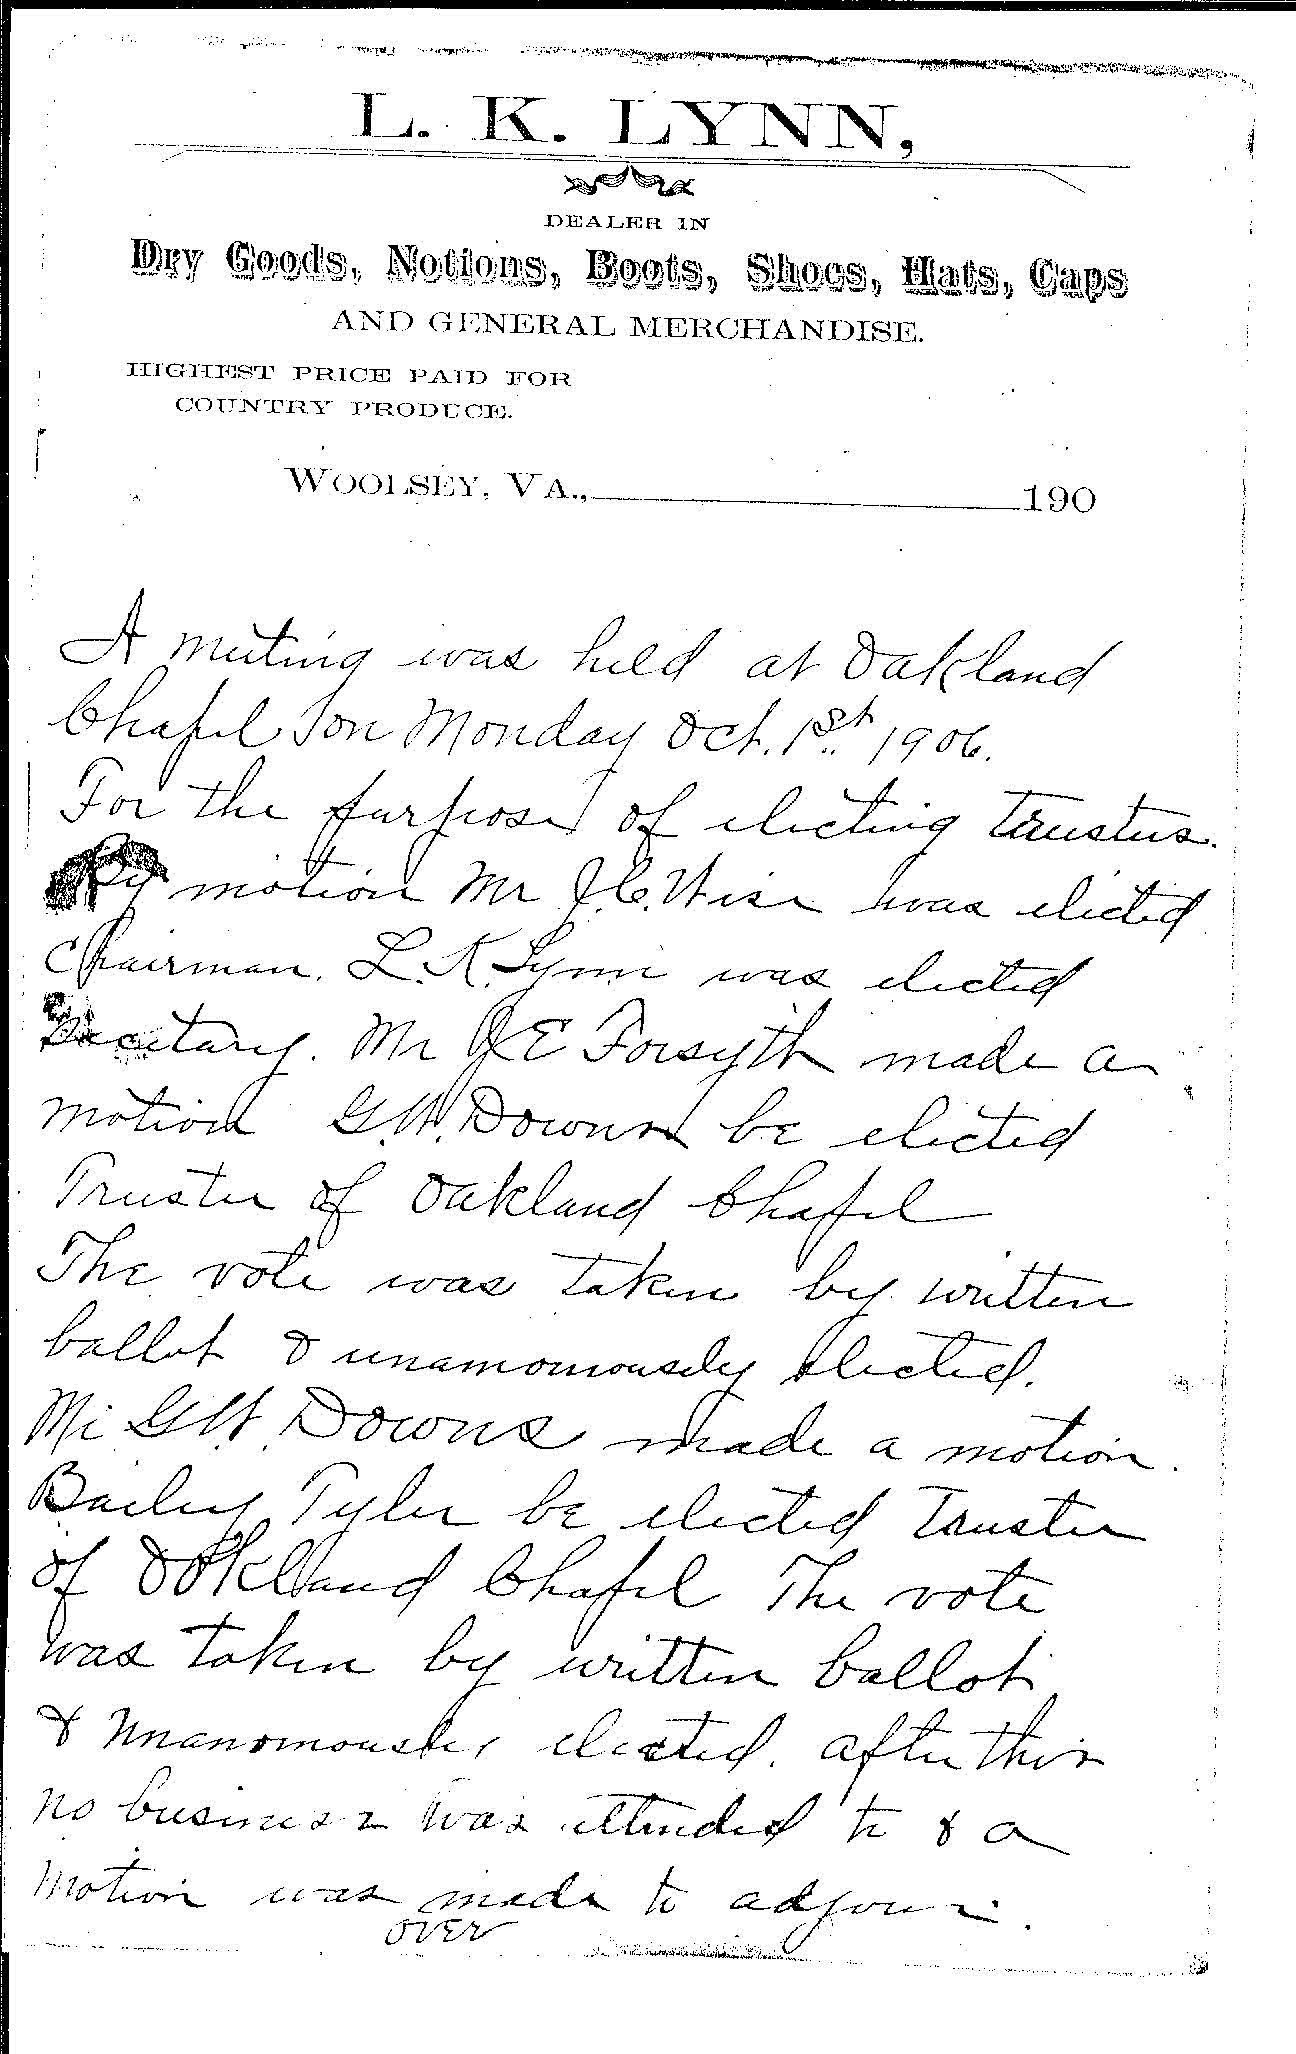 L. K. LYNN,
DEALER IN
Dry Goods, Notions, Boots, Shoes, Hats, Caps
AND GENERAL MERCHANDISE.
HIGHEST PRICE PAID FOR
COUNTRY PRODUCE.
WOOLSEY, VA., 190
A meeting was held at Oakland
Chapel on Monday Oct. 1st 1906.
For the purpose of electing trustees.
By motion Mr J.C. Wise was elected
Chairman. L.K. Lynn was elected
Secetary. Mr J E Forsyth made a
motion G.W. Downs be elected
Trustee of Oakland Chapel
The vote was taken by written
ballot & unamomously elected.
Mr G W. Downs made a motion.
Bailey Tyler be elected Trustee
of Oakland Chapel The vote
was taken by written ballot
& unanomously elected. after this
no business was attended to & a
motion was made to adjourn.
OVER